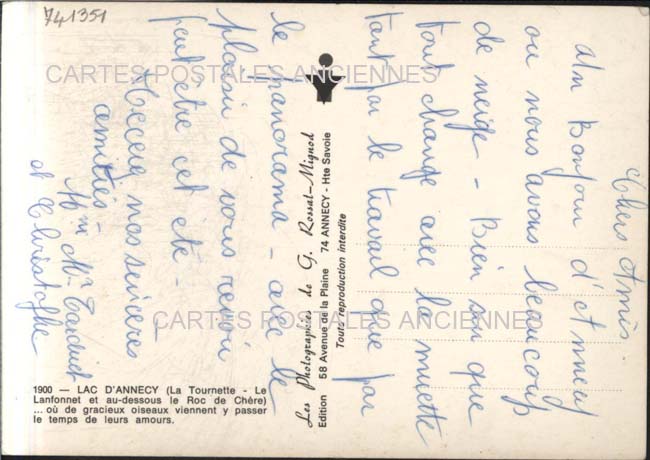 741351
Chers Amis.
Un Bonjour d'Annecy
ou nous avons beaucoup
de neige - Bien sur que
tout change avec la muette
tant par le travail que par
le panorama - avec le
plaisir de vous revoir
peut être cet été -
Recevez nos sincères
amitiés -
Mme Mr
et Christophe
Les Photographies de G. Rossat-Mignod
Edition 58 Avenue de la Plaine 74 ANNECY - Hte Savoie
Toute reproduction interdite
1900 — LAC D'ANNECY (La Tournette - Le
Lanfonnet et au-dessous le Roc de Chère)
... où de gracieux oiseaux viennent y passer
le temps de leurs amours.
CARTES POSTALES ANCIENNES
CARTES POSTALES ANCIENNES